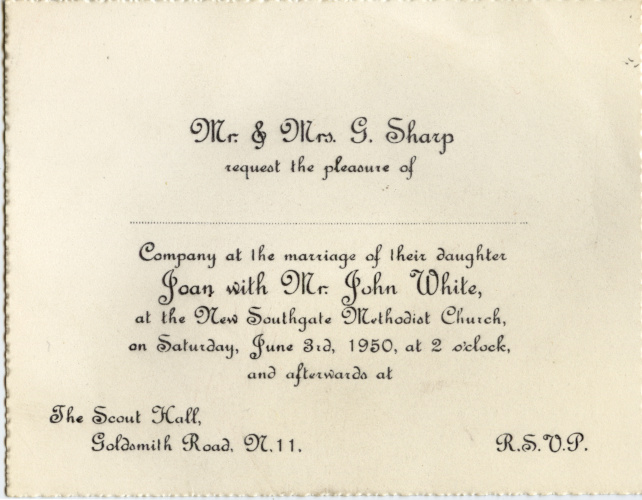 Mr. & Mrs. G. Sharp
request the pleasure of
Company at the marriage of their daughter
Joan with Mr. John White,
at the New Southgate Methodist Church,
on Saturday, June 3rd, 1950, at 2 o'clock,
and afterwards at
The Scout Hall,
Goldsmith Road, N.11.
R.S.V.P.